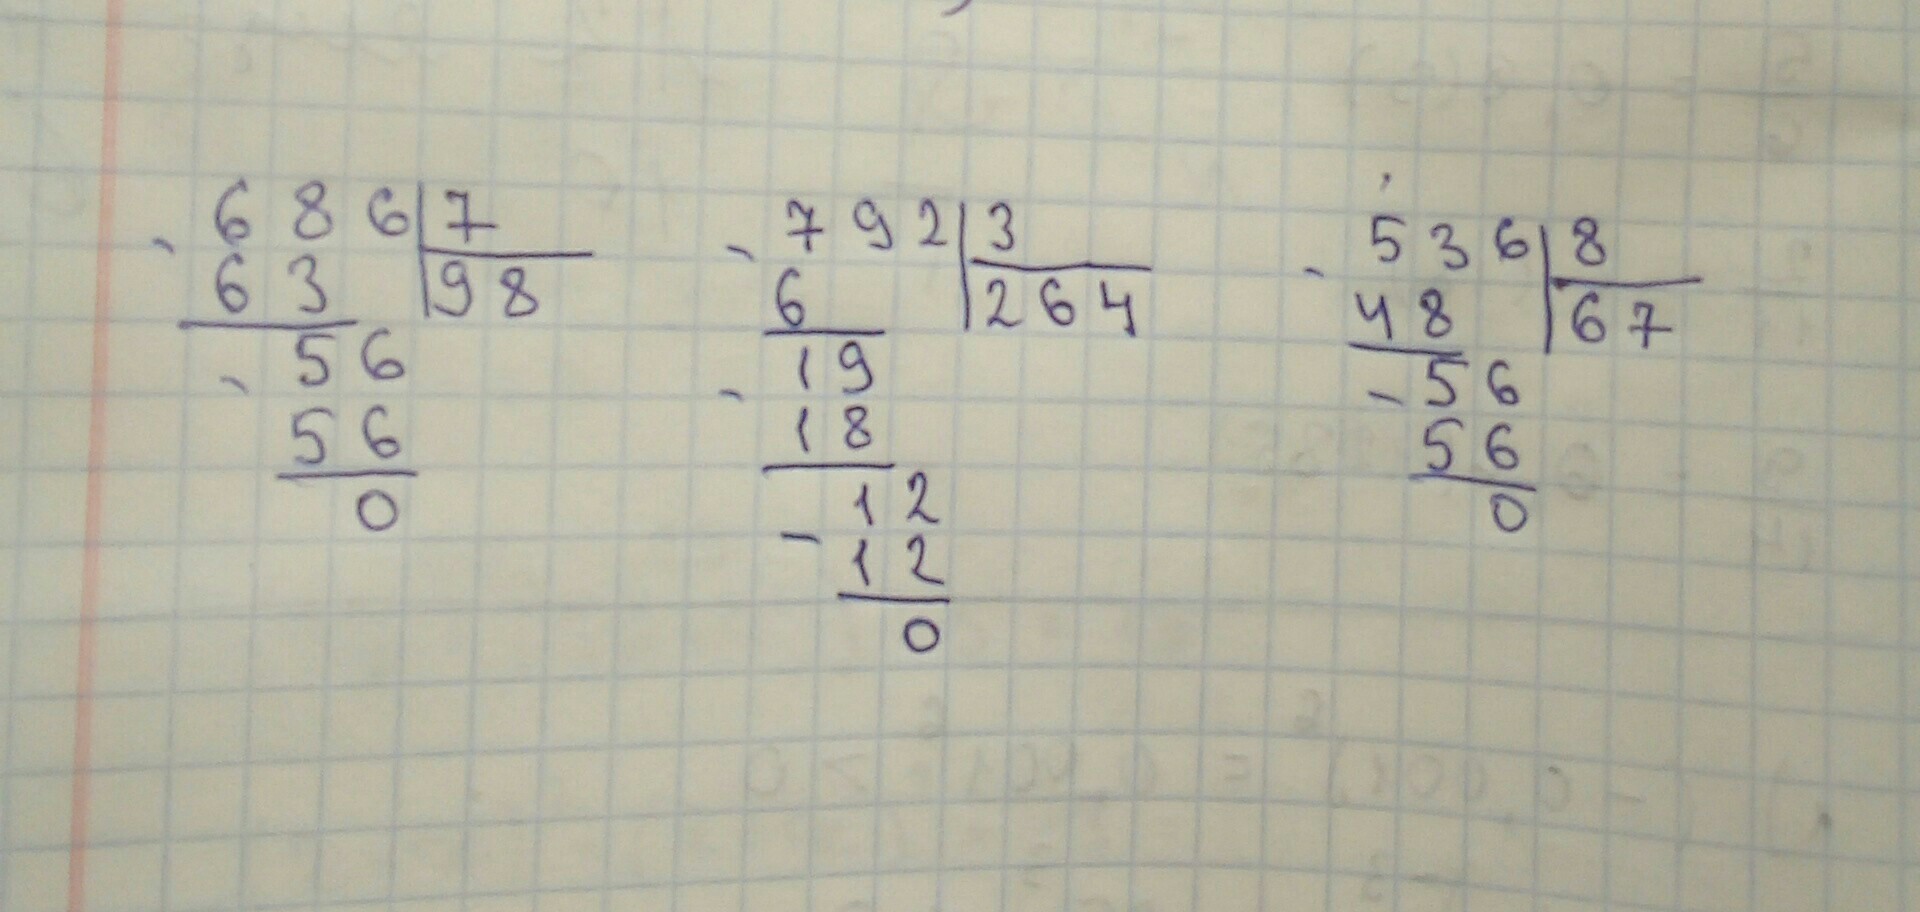 686 7
63 98
56
56
0
792 3
6 264
19
18
12
12
0
536 8
48 67
56
56
0